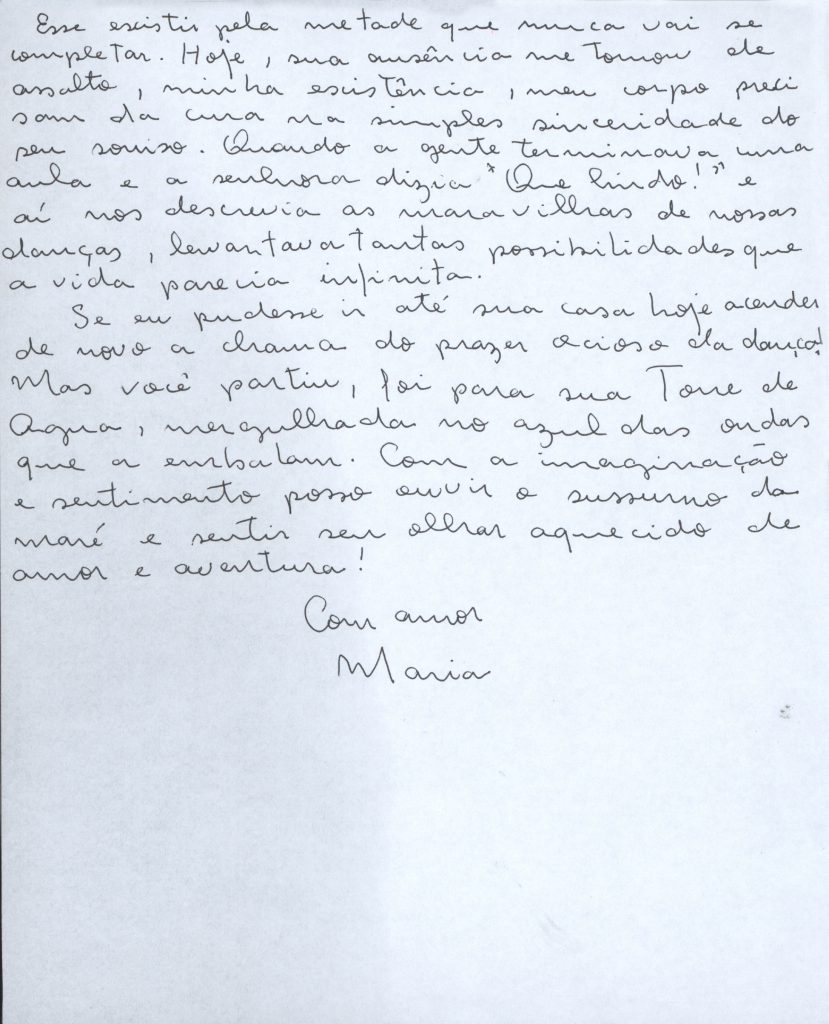 Esse existir pela metade que nunca vai se
completar. Hoje, sua ausência me tomou de
assalto, minha existência, meu corpo preci
sam da cura na simples sinceridade do
seu sorriso. Quando a gente terminava uma
aula e a senhora dizia "Que lindo!" e
aí nos descrevia as maravilhas de nossas
danças, levantava tantas possibilidades que
a vida parecia infinita.
Se eu pudesse ir até sua casa hoje acender
de novo a chama do prazer ocioso da dança!
Mas você partiu, foi para sua Torre de
Água, mergulhada no azul das ondas
que a embalam. Com a imaginação
e sentimento posso ouvir o sussurro da
maré e sentir seu olhar aquecido de
amor e aventura!
Com amor
Maria